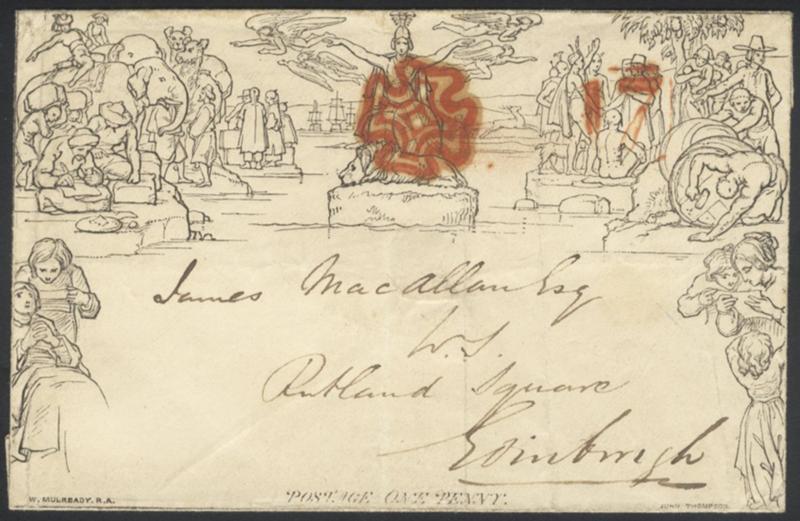 17
James MacAllan Esq
W.S.
Rutland Square
Edinburgh
POSTAGE ONE PENNY.
W. MULREADY. R.A.
JOHN THOMPSON